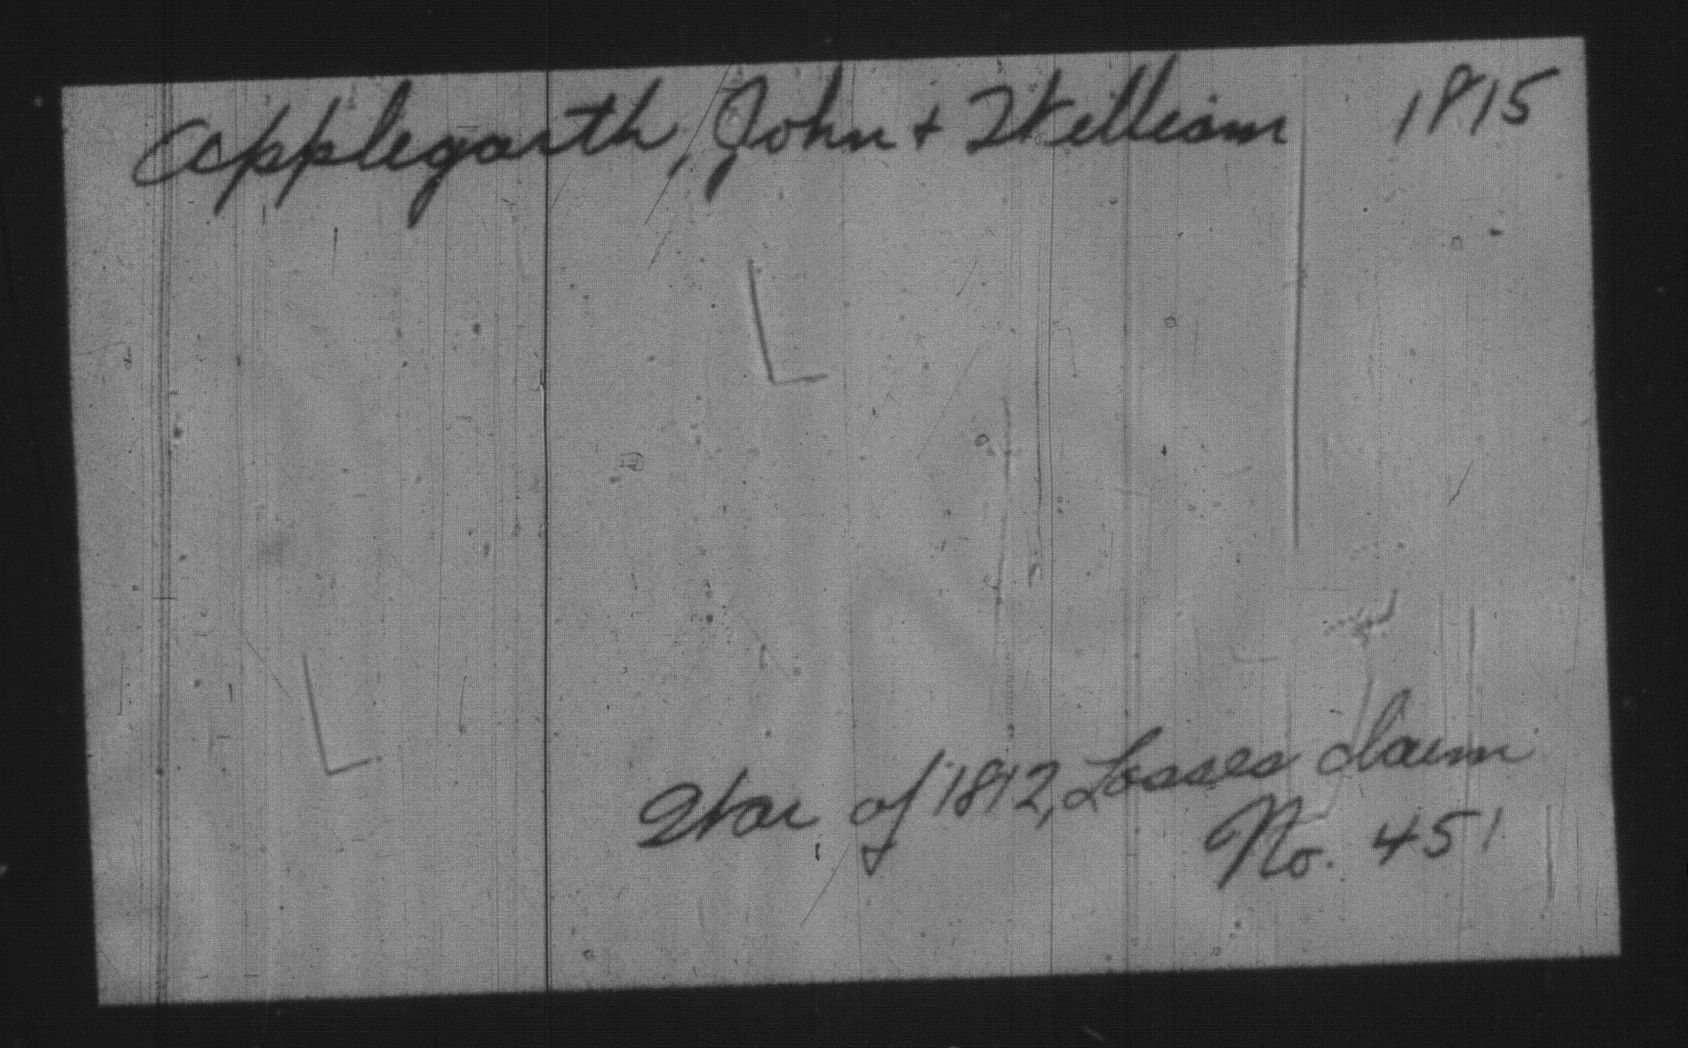 Applegarth, John + William 1815
War of 1812, Losses claim
No. 451